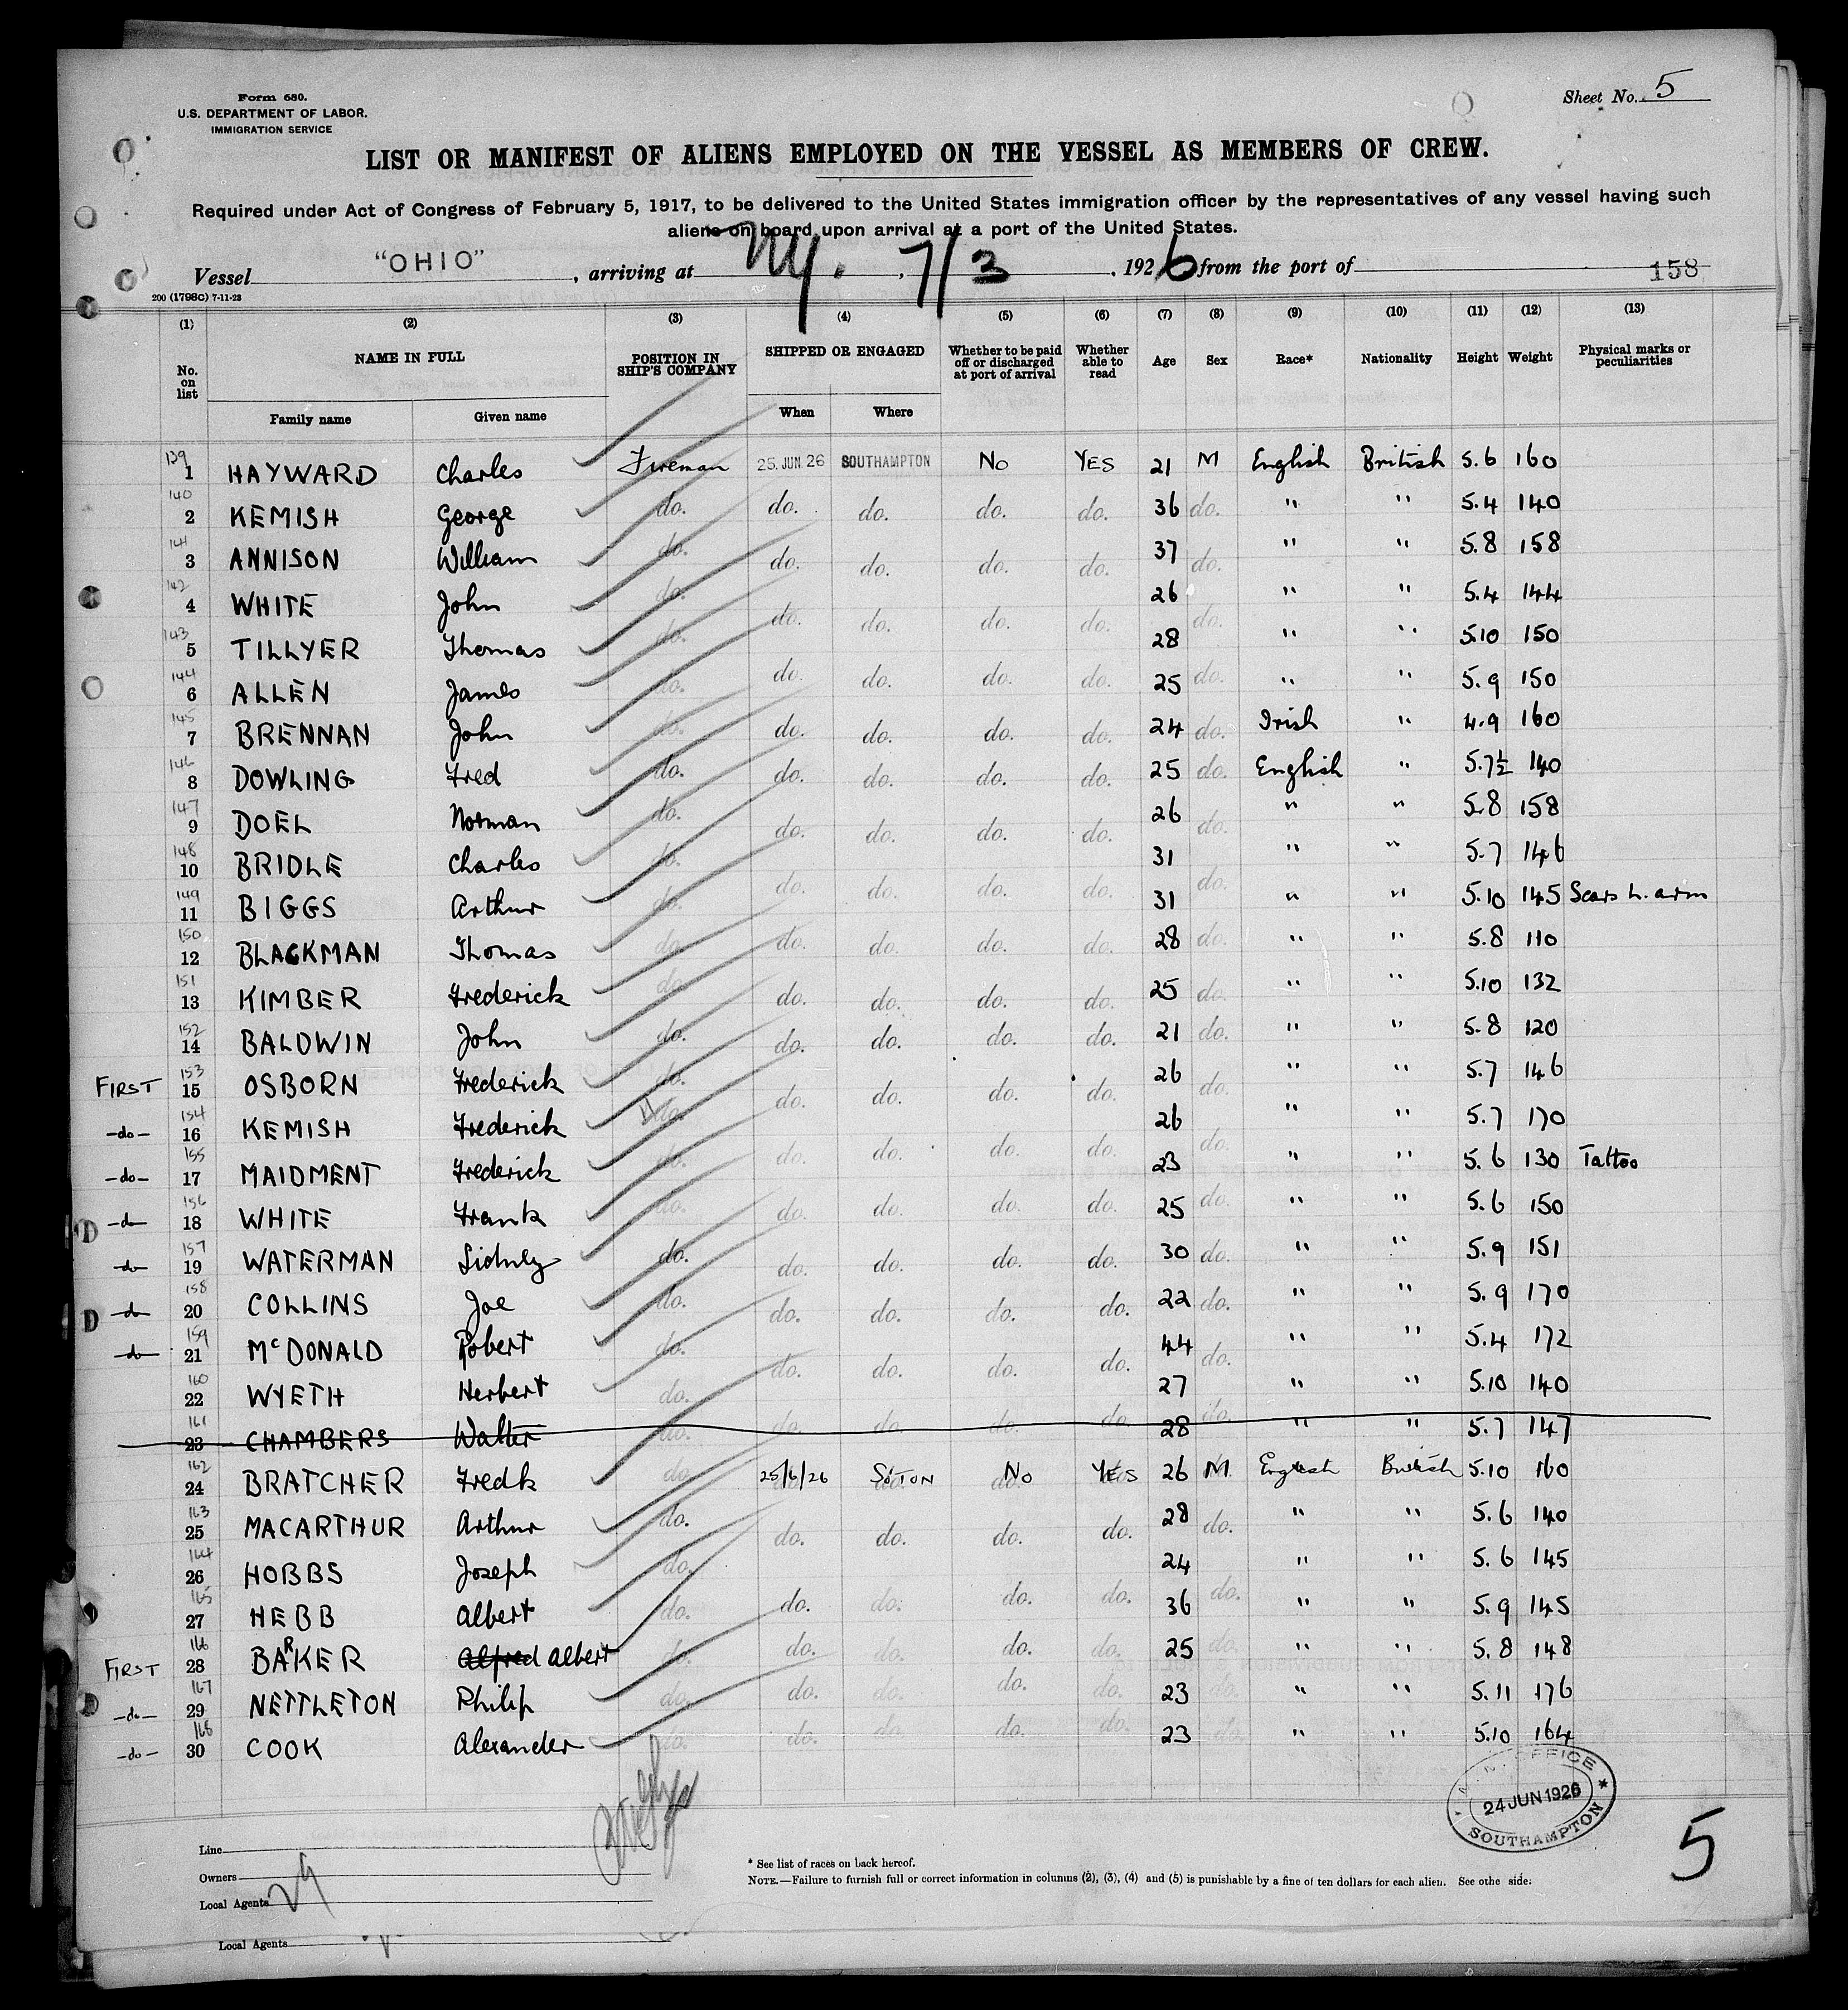 Form 680.
U.S. DEPARTMENT OF LABOR.
IMMIGRATION SERVICE
Sheet No. 5
LIST OR MANIFEST OF ALIENS EMPLOYED ON THE VESSEL AS MEMBERS OF CREW.
Required under Act of Congress of February 5, 1917, to be delivered to the United States immigration officer by the representatives of any vessel having such
aliens on board upon arrival at a port of the United States.
Vessel "OHIO", arriving at NY., 7/3, 1926 from the port of 158
200 (1798c) 7-11-23
(1) (2) (3) (4) (5) (6) (7) (8) (9) (10) (11) (12) (13)
No. on list NAME IN FULL POSITION IN SHIP'S COMPANY SHIPPED OR ENGAGED Whether to be paid off or discharged at port of arrival Whether able to read Age Sex Race* Nationality Height Weight Physical marks or peculiarities
Family name Given name When Where
139 1 HAYWARD Charles Fireman 25. JUN. 26 SOUTHAMPTON No YES 21 M English British 5.6 160
140 2 KEMISH George do. do. do. do. do. 36 do. " " 5.4 140
141 3 ANNISON William do. do. do. do. do. 37 do. " " 5.8 158
142 4 WHITE John do. do. do. do. do. 26 do. " " 5.4 144
143 5 TILLYER Thomas do. do. do. do. do. 28 do. " " 5.10 150
144 6 ALLEN James do. do. do. do. do. 25 do. " " 5.9 150
145 7 BRENNAN John do. do. do. do. do. 24 do. Irish " 4.9 160
146 8 DOWLING Fred do. do. do. do. do. 25 do. English " 5.7½ 140
147 9 DOEL Norman do. do. do. do. do. 26 do. " " 5.8 158
148 10 BRIDLE Charles do. do. do. do. do. 31 do. " " 5.7 146
149 11 BIGGS Arthur do. 31 " " 5.10 145 Scars L. arm
150 12 BLACKMAN Thomas do. do. do. do. do. 28 do. " " 5.8 110
151 13 KIMBER Frederick do. do. do. do. do. 25 do. " " 5.10 132
152 14 BALDWIN John do. do. do. do. do. 21 do. " " 5.8 120
FIRST 153 15 OSBORN Frederick do. do. do. do. do. 26 do. " " 5.7 146
-do- 154 16 KEMISH Frederick do. do. do. do. do. 26 do. " " 5.7 170
-do- 155 17 MAIDMENT Frederick do. 23 " " 5.6 130 Tattoo
-do- 156 18 WHITE Frank do. do. do. do. do. 25 do. " " 5.6 150
-do- 157 19 WATERMAN Sidney do. do. do. do. do. 30 do. " " 5.9 151
-do- 158 20 COLLINS Joe do. do. do. do. do. 22 do. " " 5.9 170
-do- 159 21 McDONALD Robert do. do. do. do. do. 44 do. " " 5.4 172
160 22 WYETH Herbert do. 27 " " 5.10 140
161 23 CHAMBERS Walter do. do. do. do. do. 28 do. " " 5.7 147
162 24 BRATCHER Fredk do. 25/6/26 S'TON No YES 26 M English British 5.10 160
163 25 MACARTHUR Arthur do. do. do. do. do. 28 do. " " 5.6 140
164 26 HOBBS Joseph do. 24 " " 5.6 145
165 27 HEBB Albert do. do. do. do. do. 36 do. " " 5.9 145
FIRST 166 28 BARKER Alfred Albert do. do. do. do. do. 25 do. " " 5.8 148
-do- 167 29 NETTLETON Philip do. do. do. do. do. 23 do. " " 5.11 176
-do- 168 30 COOK Alexander do. do. do. do. do. 23 do. " " 5.10 164
OFFICE
24 JUN 1926
SOUTHAMPTON
5
Line
Owners
Local Agents 29
* See list of races on back hereof.
NOTE.—Failure to furnish full or correct information in columns (2), (3), (4) and (5) is punishable by a fine of ten dollars for each alien. See othe side.
Local Agents